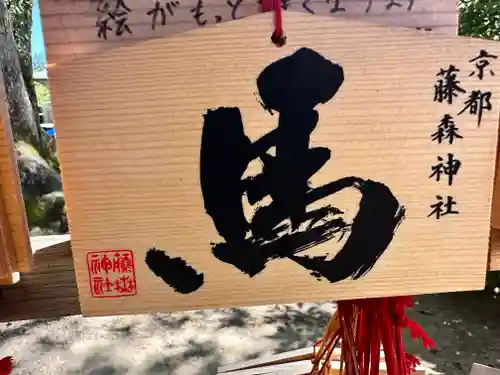 絵がもっと
京都
藤森神社
馬
藤森
神社